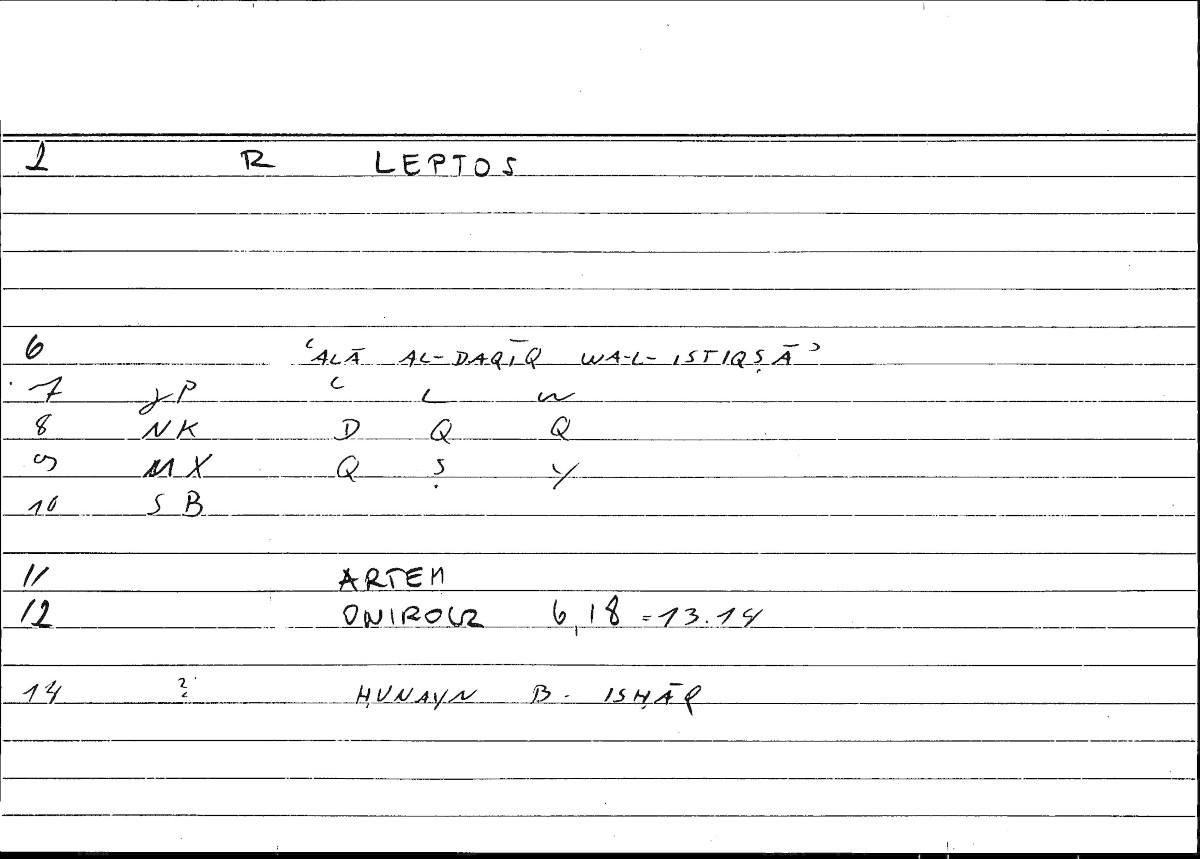 1 R LEPTOS
6 ʿALĀ AL-DAQĪQ WA-L-ISTIQṢĀʾ
7 gP ʿ L W
8 NK D Q Q
9 MX Q Ṣ Y
10 SB
11 ARTEM
12 ONIROCR 6,18 = 13.14
14 ? ḤUNAYN B. ISḤĀQ